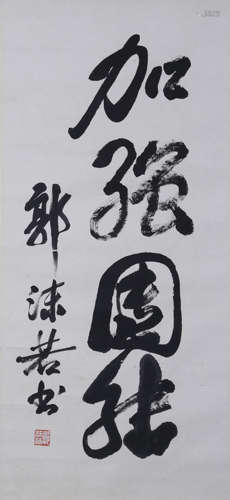 加强团结
郭沫若书